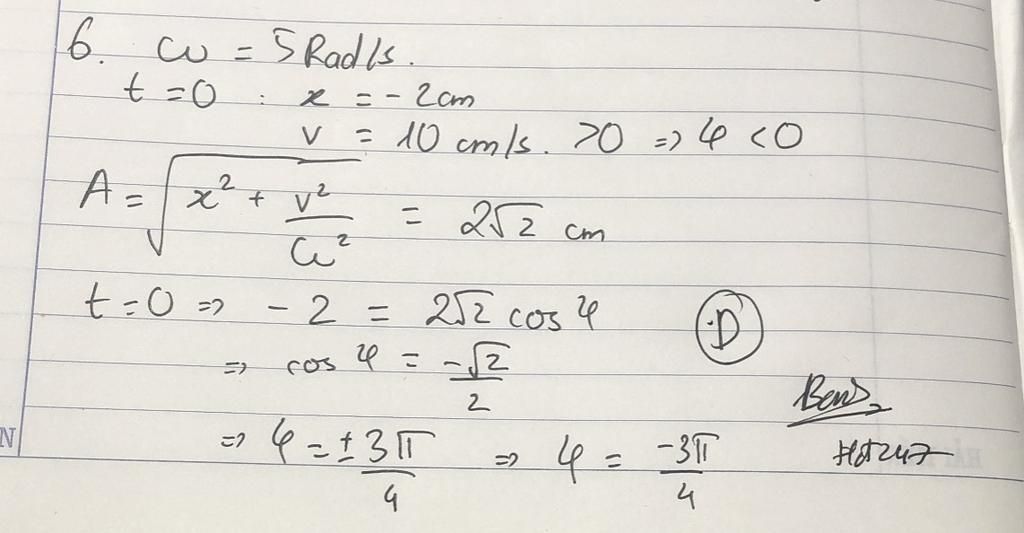 6. ω = 5 Rad/s.
t = 0 : x = - 2cm
v = 10 cm/s. >0 => φ < 0
A = √(x² + v²/ω²) = 2√2 cm
t = 0 => - 2 = 2√2 cos φ
D
=> cos φ = -√2/2
=> φ = ± 3π/4 => φ = -3π/4
N